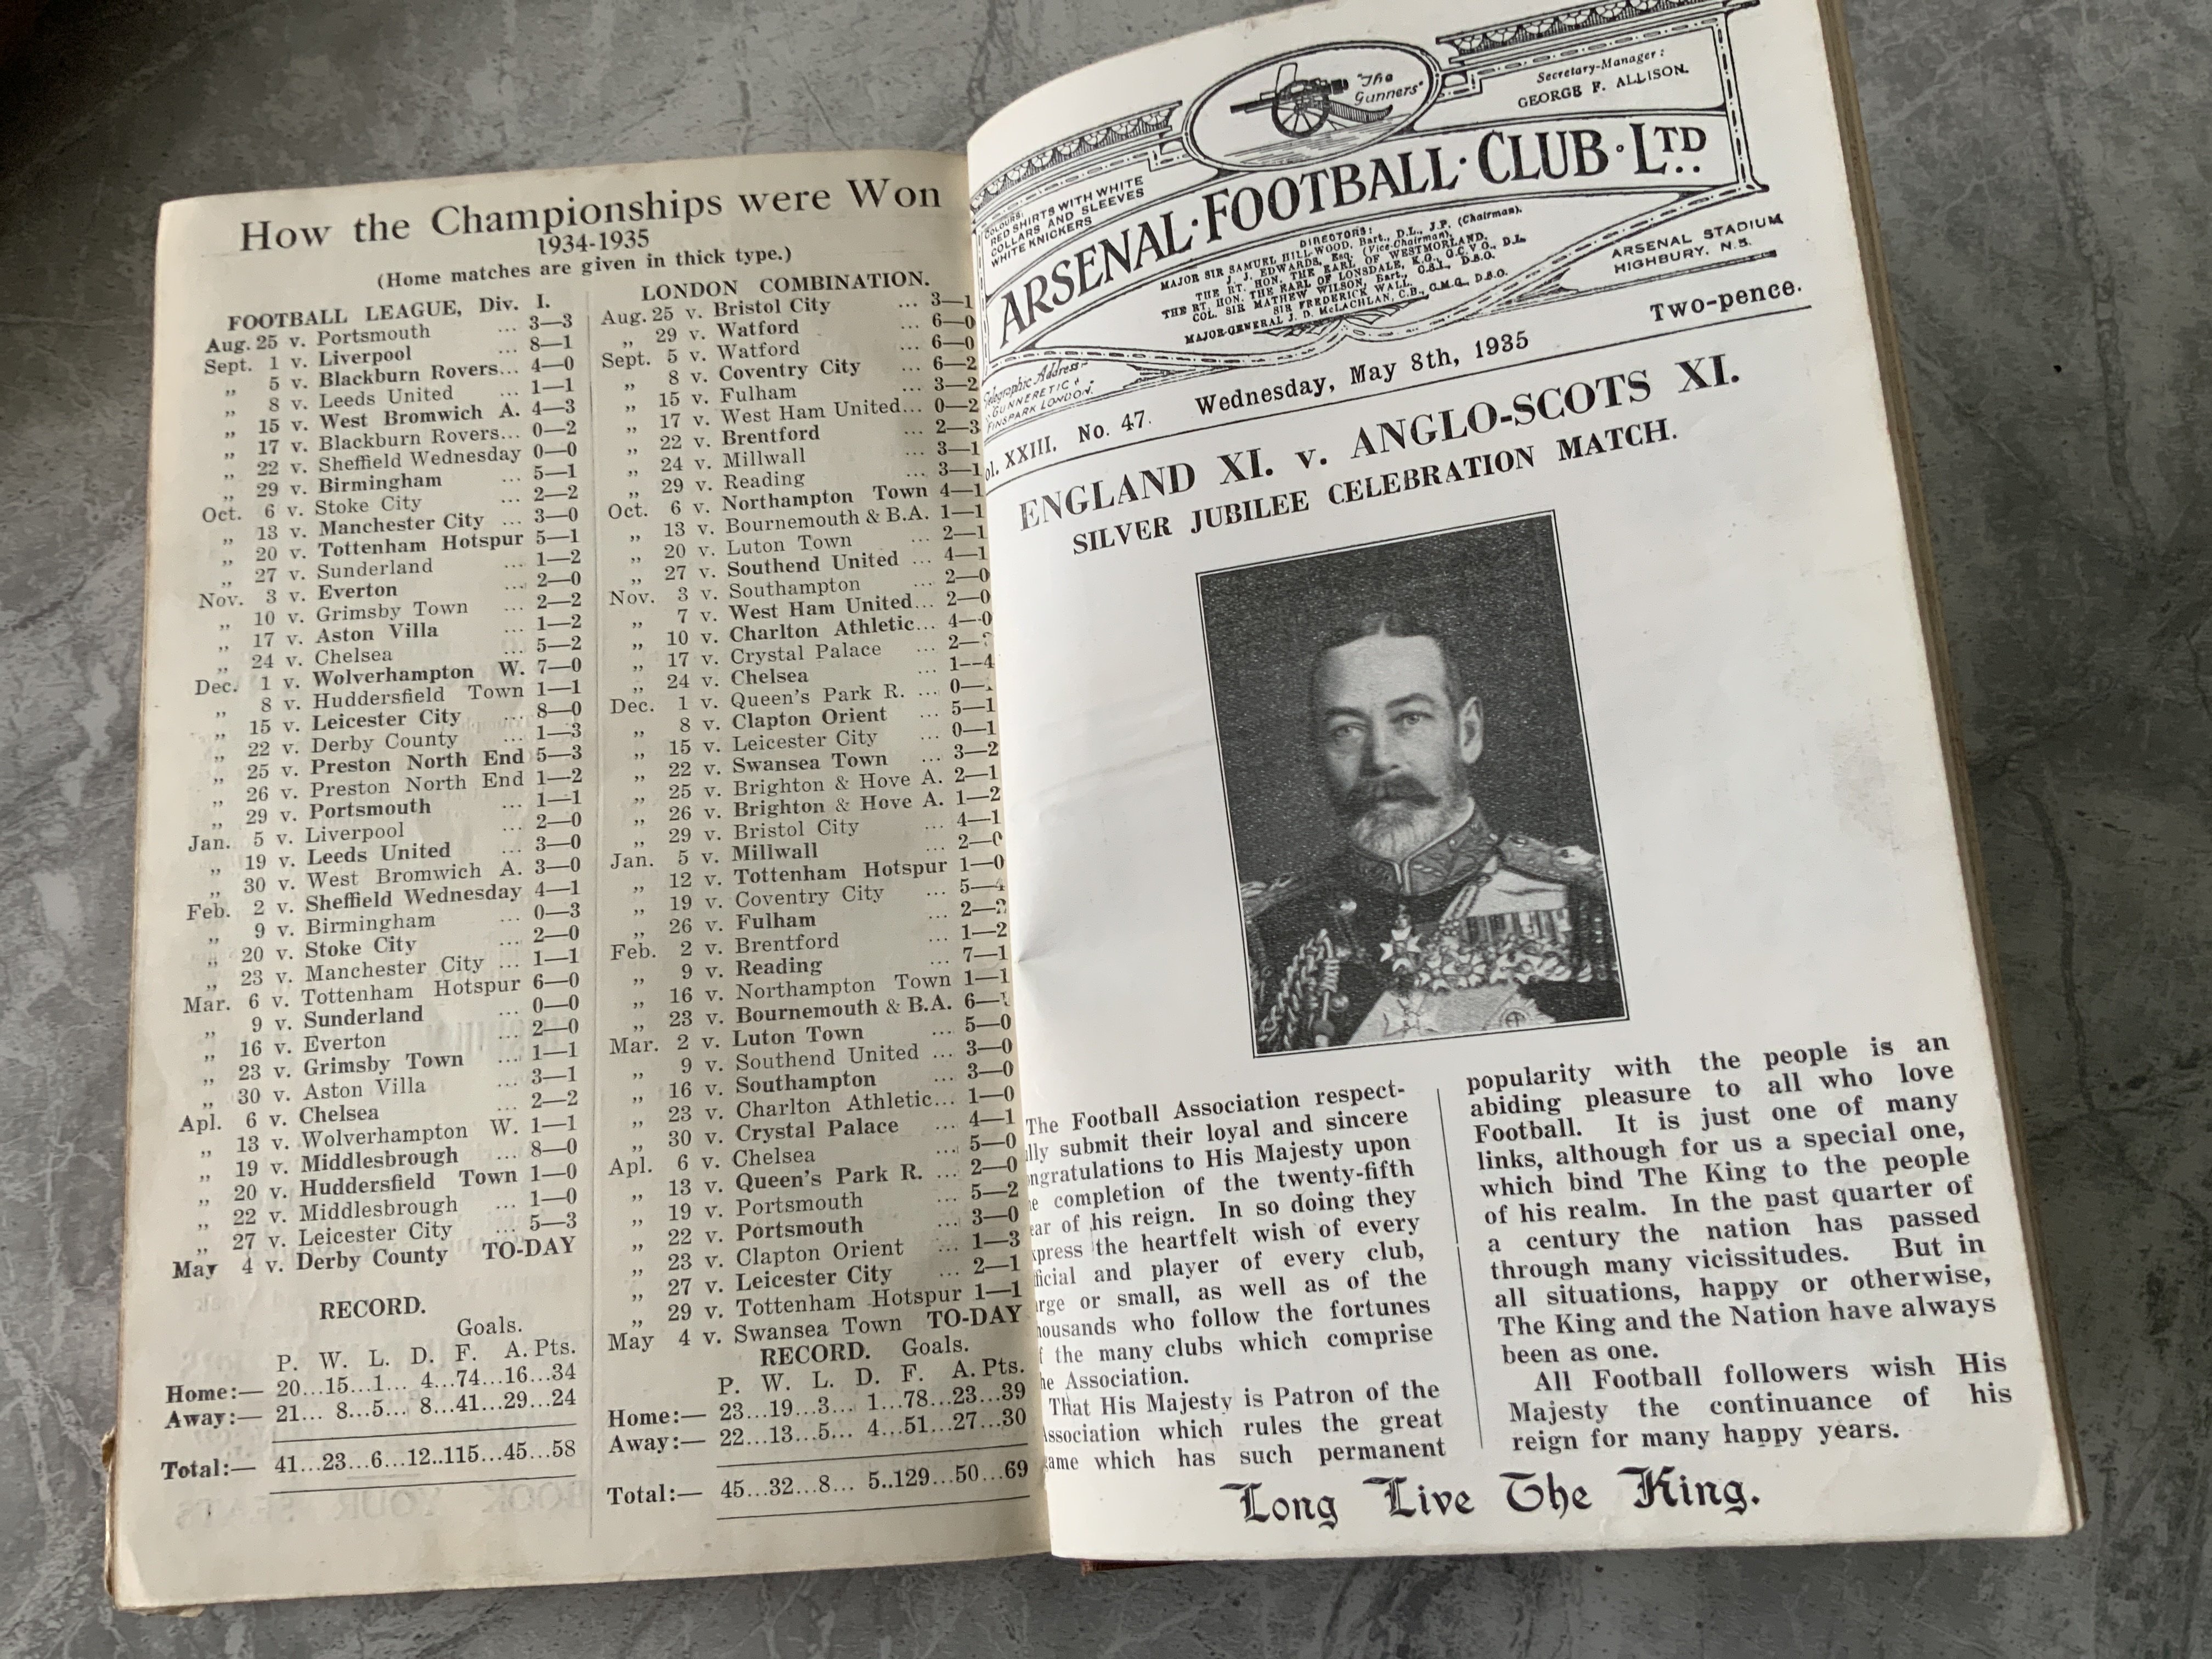 How the Championships were Won
1934-1935
(Home matches are given in thick type.)
FOOTBALL LEAGUE, Div. I.
Aug. 25 v. Portsmouth ... 3—3
Sept. 1 v. Liverpool ... 8—1
„ 5 v. Blackburn Rovers... 4—0
„ 8 v. Leeds United ... 1—1
„ 15 v. West Bromwich A. 4—3
„ 17 v. Blackburn Rovers... 0—2
„ 22 v. Sheffield Wednesday 0—0
„ 29 v. Birmingham ... 5—1
Oct. 6 v. Stoke City ... 2—2
„ 13 v. Manchester City ... 3—0
„ 20 v. Tottenham Hotspur 5—1
„ 27 v. Sunderland ... 1—2
Nov. 3 v. Everton ... 2—0
„ 10 v. Grimsby Town ... 2—2
„ 17 v. Aston Villa ... 1—2
„ 24 v. Chelsea ... 5—2
Dec. 1 v. Wolverhampton W. 7—0
„ 8 v. Huddersfield Town 1—1
„ 15 v. Leicester City ... 8—0
„ 22 v. Derby County ... 1—3
„ 25 v. Preston North End 5—3
„ 26 v. Preston North End 1—2
„ 29 v. Portsmouth ... 1—1
Jan. 5 v. Liverpool ... 2—0
„ 19 v. Leeds United ... 3—0
„ 30 v. West Bromwich A. 3—0
Feb. 2 v. Sheffield Wednesday 4—1
„ 9 v. Birmingham ... 0—3
„ 20 v. Stoke City ... 2—0
„ 23 v. Manchester City ... 1—1
Mar. 6 v. Tottenham Hotspur 6—0
„ 9 v. Sunderland ... 0—0
„ 16 v. Everton ... 2—0
„ 23 v. Grimsby Town ... 1—1
„ 30 v. Aston Villa ... 3—1
Apl. 6 v. Chelsea ... 2—2
„ 13 v. Wolverhampton W. 1—1
„ 19 v. Middlesbrough ... 8—0
„ 20 v. Huddersfield Town 1—0
„ 22 v. Middlesbrough ... 1—0
„ 27 v. Leicester City ... 5—3
May 4 v. Derby County TO-DAY
RECORD.
Goals.
P. W. L. D. F. A. Pts.
Home:— 20...15...1... 4...74...16...34
Away:— 21... 8...5... 8...41...29...24
Total:— 41...23...6...12..115...45...58
LONDON COMBINATION.
Aug. 25 v. Bristol City ... 3—1
„ 29 v. Watford ... 6—0
Sept. 5 v. Watford ... 6—0
„ 8 v. Coventry City ... 6—2
„ 15 v. Fulham ... 3—2
„ 17 v. West Ham United... 0—2
„ 22 v. Brentford ... 2—3
„ 24 v. Millwall ... 3—1
„ 29 v. Reading ... 3—1
Oct. 6 v. Northampton Town 4—1
„ 13 v. Bournemouth & B.A. 1—1
„ 20 v. Luton Town ... 2—1
„ 27 v. Southend United ... 4—1
Nov. 3 v. Southampton ... 2—0
„ 7 v. West Ham United... 2—0
„ 10 v. Charlton Athletic... 4—0
„ 17 v. Crystal Palace ... 2—
„ 24 v. Chelsea ... 1—4
Dec. 1 v. Queen's Park R. ... 0—
„ 8 v. Clapton Orient ... 5—1
„ 15 v. Leicester City ... 0—1
„ 22 v. Swansea Town ... 3—2
„ 25 v. Brighton & Hove A. 2—1
„ 26 v. Brighton & Hove A. 1—2
„ 29 v. Bristol City ... 4—1
Jan. 5 v. Millwall ... 2—0
„ 12 v. Tottenham Hotspur 1—0
„ 19 v. Coventry City ... 5—4
„ 26 v. Fulham ... 2—2
Feb. 2 v. Brentford ... 1—2
„ 9 v. Reading ... 7—1
„ 16 v. Northampton Town 1—1
„ 23 v. Bournemouth & B.A. 6—1
Mar. 2 v. Luton Town ... 5—0
„ 9 v. Southend United ... 3—0
„ 16 v. Southampton ... 3—0
„ 23 v. Charlton Athletic... 1—0
„ 30 v. Crystal Palace ... 4—1
Apl. 6 v. Chelsea ... 5—0
„ 13 v. Queen's Park R. ... 2—0
„ 19 v. Portsmouth ... 5—2
„ 22 v. Portsmouth ... 3—0
„ 23 v. Clapton Orient ... 1—3
„ 27 v. Leicester City ... 2—1
„ 29 v. Tottenham Hotspur 1—1
May 4 v. Swansea Town TO-DAY
RECORD. Goals.
P. W. L. D. F. A. Pts.
Home:— 23...19...3... 1...78...23...39
Away:— 22...13...5... 4...51...27...30
Total:— 45...32...8... 5..129...50...69
"The Gunners"
Secretary-Manager:
GEORGE F. ALLISON.
COLOURS:
RED SHIRTS WITH WHITE
COLLARS AND SLEEVES
WHITE KNICKERS
ARSENAL·FOOTBALL·CLUB·LTD
DIRECTORS:
MAJOR SIR SAMUEL HILL-WOOD, Bart., D.L., J.P. (Chairman).
J. J. EDWARDS, Esq. (Vice-Chairman).
THE RT. HON. THE EARL OF WESTMORLAND.
THE RT. HON. THE EARL OF LONSDALE, K.G., G.C.V.O., D.L.
COL. SIR MATHEW WILSON, Bart., C.S.I., D.S.O.
SIR FREDERICK WALL.
MAJOR-GENERAL J. D. McLACHLAN, C.B., C.M.G., D.S.O.
ARSENAL STADIUM
HIGHBURY, N.5.
Telegraphic Address
"GUNNERETIC
FINSPARK LONDON."
ol. XXIII. No. 47. Wednesday, May 8th, 1935 Two-pence.
ENGLAND XI. v. ANGLO-SCOTS XI.
SILVER JUBILEE CELEBRATION MATCH.
The Football Association respect-
lly submit their loyal and sincere
ngratulations to His Majesty upon
e completion of the twenty-fifth
ear of his reign. In so doing they
press the heartfelt wish of every
ficial and player of every club,
rge or small, as well as of the
housands who follow the fortunes
f the many clubs which comprise
he Association.
That His Majesty is Patron of the
Association which rules the great
game which has such permanent
popularity with the people is an
abiding pleasure to all who love
Football. It is just one of many
links, although for us a special one,
which bind The King to the people
of his realm. In the past quarter of
a century the nation has passed
through many vicissitudes. But in
all situations, happy or otherwise,
The King and the Nation have always
been as one.
All Football followers wish His
Majesty the continuance of his
reign for many happy years.
Long Live The King.